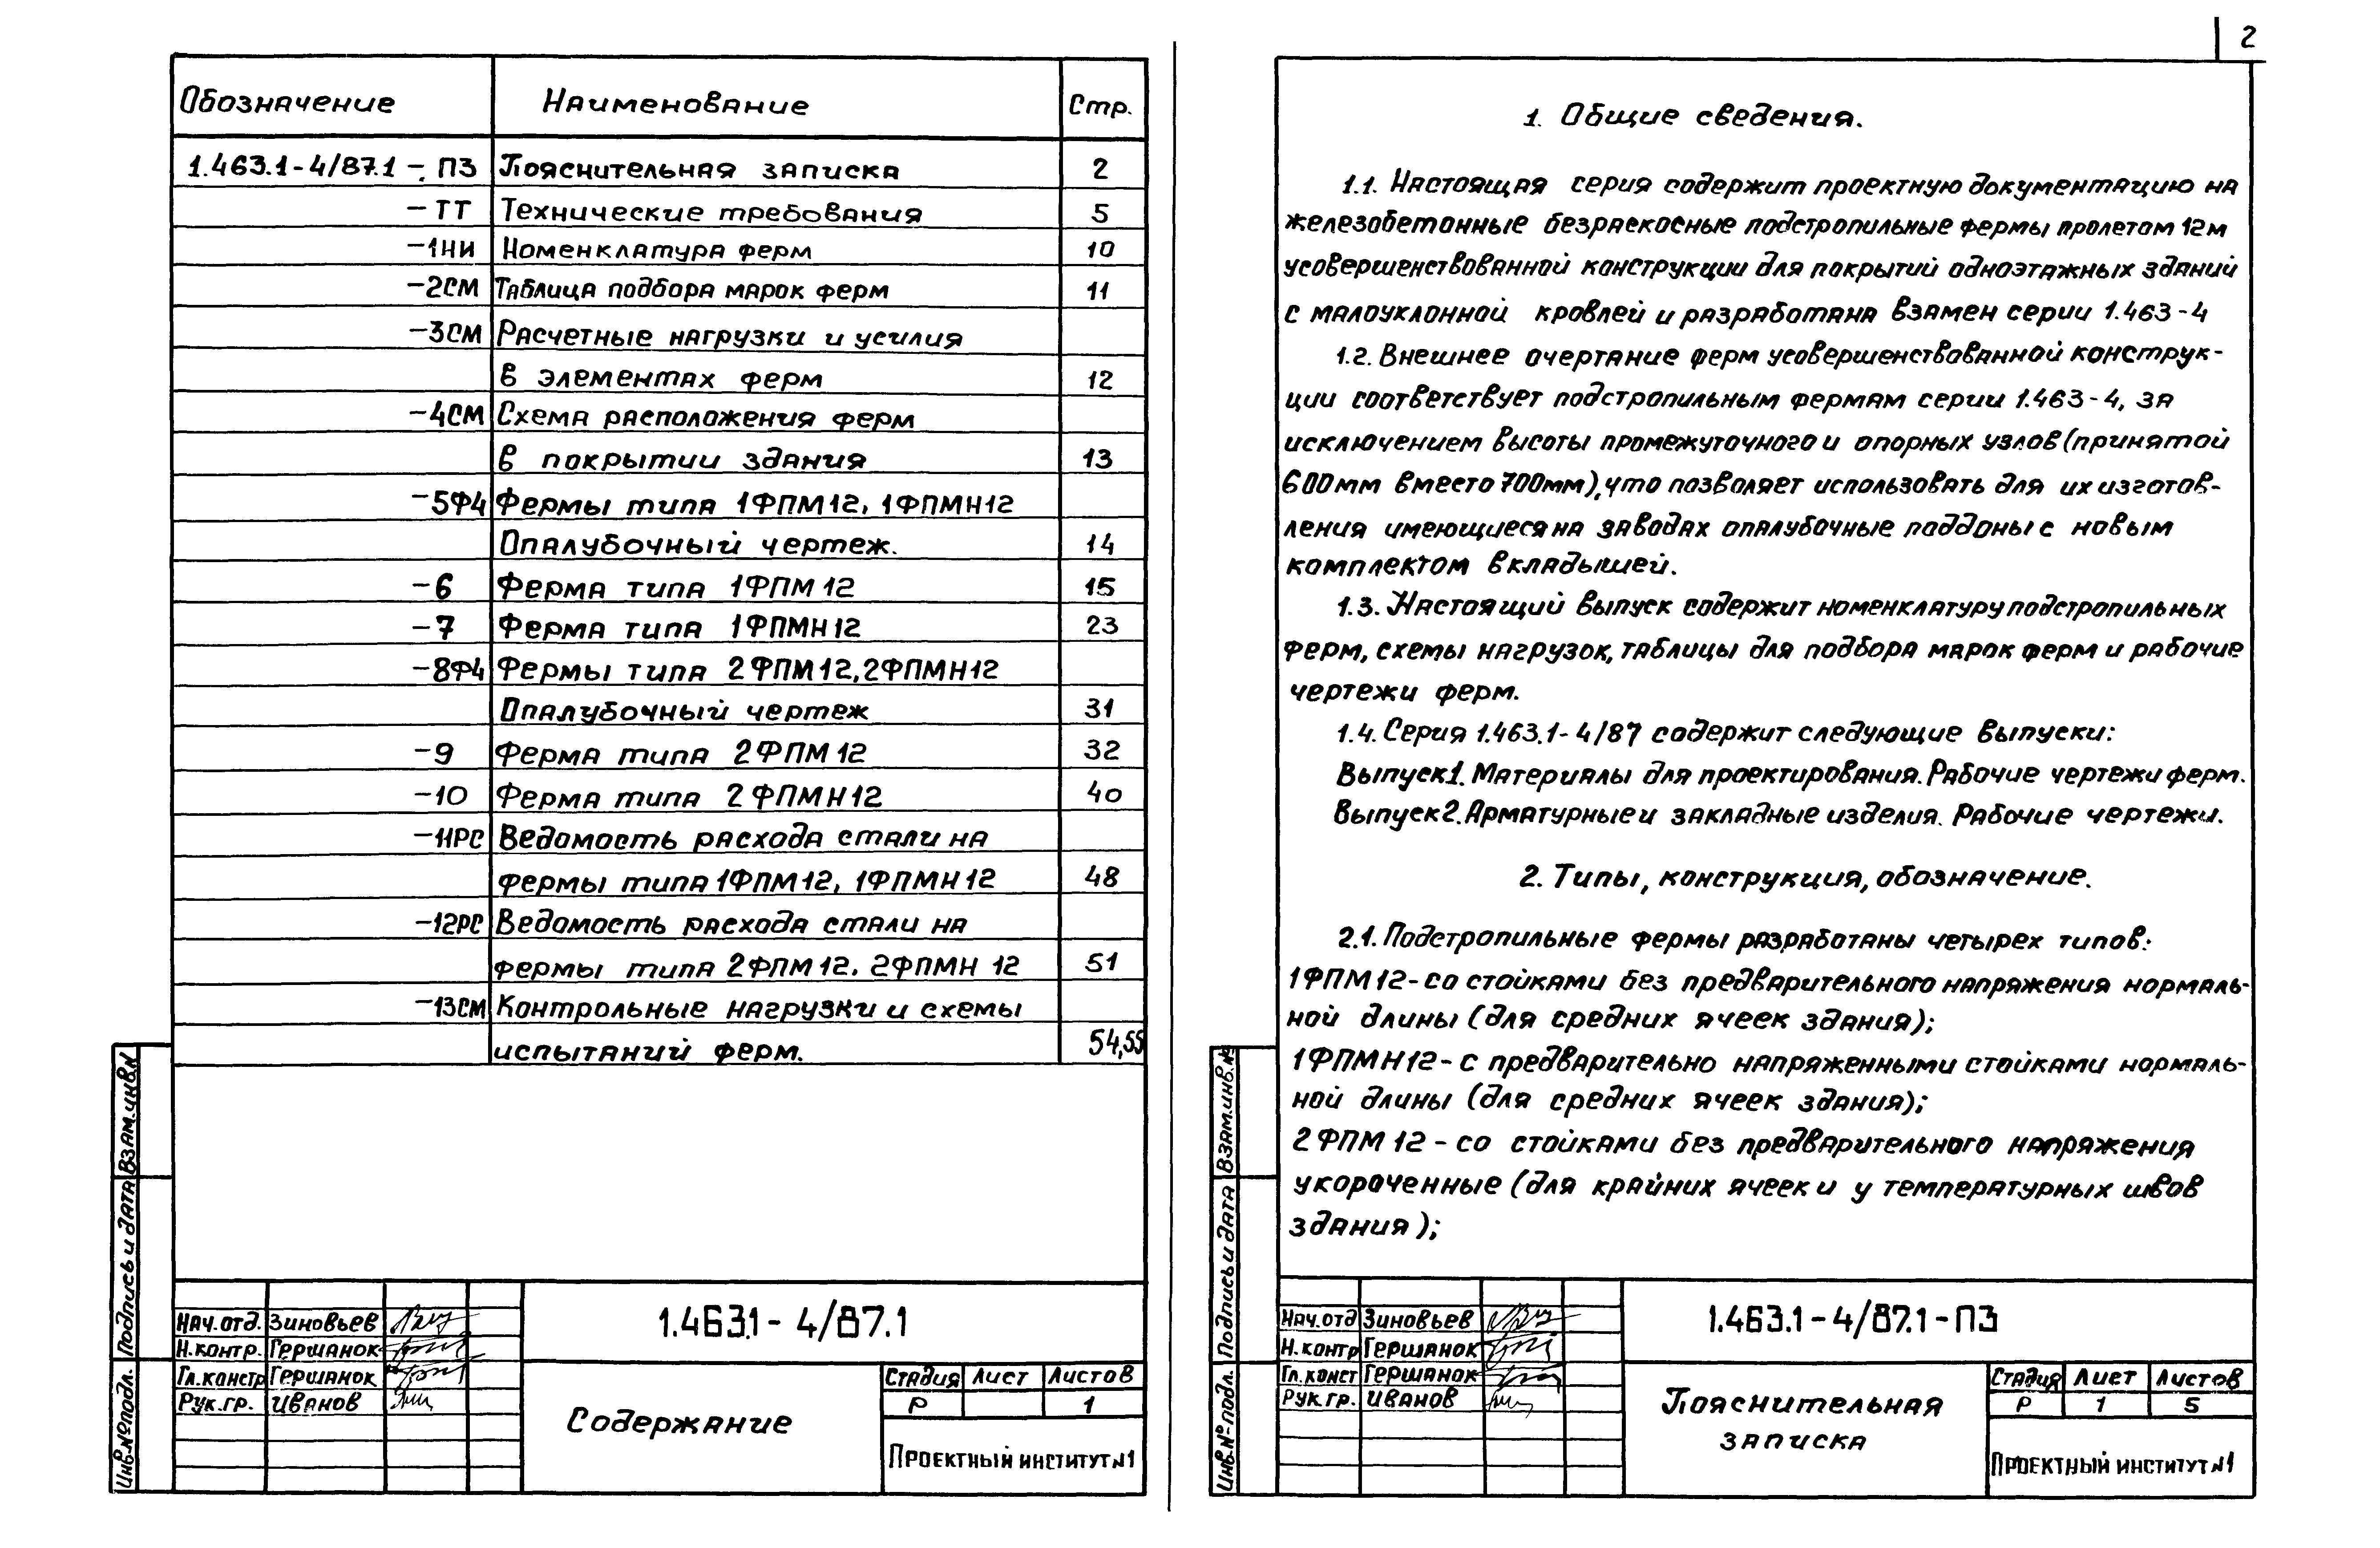 Обозначение Наименование Стр.
1.463.1-4/87.1 - ПЗ Пояснительная записка 2
-ТТ Технические требования 5
-1НИ Номенклатура ферм 10
-2СМ Таблица подбора марок ферм 11
-3СМ Расчетные нагрузки и усилия
в элементах ферм 12
-4СМ Схема расположения ферм
в покрытии здания 13
-5Ф4 Фермы типа 1ФПМ12, 1ФПМН12
Опалубочный чертеж. 14
-6 Ферма типа 1ФПМ12 15
-7 Ферма типа 1ФПМН12 23
-8Ф4 Фермы типа 2ФПМ12, 2ФПМН12
Опалубочный чертеж 31
-9 Ферма типа 2ФПМ12 32
-10 Ферма типа 2ФПМН12 40
-11РС Ведомость расхода стали на
фермы типа 1ФПМ12, 1ФПМН12 48
-12РС Ведомость расхода стали на
фермы типа 2ФПМ12. 2ФПМН 12 51
-13СМ Контрольные нагрузки и схемы
испытаний ферм. 54,55
Взам.инв.N
Подпись и дата
Инв.№подл.
Нач.отд. Зиновьев
Н.контр. Гершанок
Гл.констр Гершанок
Рук.гр. Иванов
1.463.1- 4/87.1
Содержание
Стадия Лист Листов
Р 1
Проектный институт №1
2
1. Общие сведения.
1.1. Настоящая серия содержит проектную документацию на
железобетонные безраскосные подстропильные фермы пролетом 12м
усовершенствованной конструкции для покрытий одноэтажных зданий
с малоуклонной кровлей и разработана взамен серии 1.463-4
1.2. Внешнее очертание ферм усовершенствованной конструк-
ции соответствует подстропильным фермам серии 1.463-4, за
исключением высоты промежуточного и опорных узлов (принятой
600мм вместо 700мм), что позволяет использовать для их изготов-
ления имеющиеся на заводах опалубочные поддоны с новым
комплектом вкладышей.
1.3. Настоящий выпуск содержит номенклатуру подстропильных
ферм, схемы нагрузок, таблицы для подбора марок ферм и рабочие
чертежи ферм.
1.4. Серия 1.463.1-4/87 содержит следующие выпуски:
Выпуск1. Материалы для проектирования. Рабочие чертежи ферм.
Выпуск2. Арматурные и закладные изделия. Рабочие чертежи.
2. Типы, конструкция, обозначение.
2.1. Подстропильные фермы разработаны четырех типов:
1ФПМ12- со стойками без предварительного напряжения нормаль-
ной длины (для средних ячеек здания);
1ФПМН12- с предварительно напряженными стойками нормаль-
ной длины (для средних ячеек здания);
2ФПМ12 - со стойками без предварительного напряжения
укороченные (для крайних ячеек и у температурных швов
здания);
Взам.инв.№
Подпись и дата
Инв.№подл.
Нач.отд Зиновьев
Н.контр Гершанок
Гл.конст Гершанок
Рук.гр. Иванов
1.463.1-4/87.1-ПЗ
Пояснительная
записка
Стадия Лист Листов
Р 1 5
Проектный институт №1